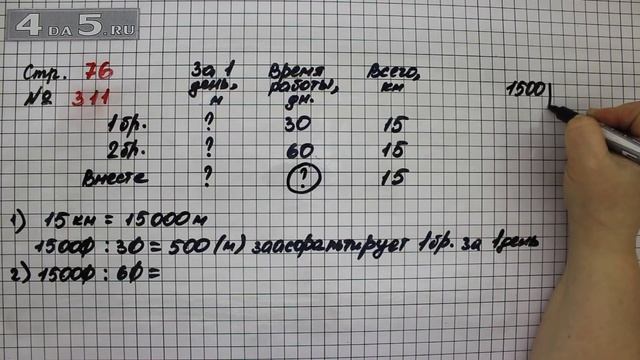 4 DA 5.RU
Стр. 76
№ 311
За 1 день, м
Время работы, дн.
Всего, км
1 бр. ? 30 15
2 бр. ? 60 15
Вместе ? ? 15
1) 15 км = 15000 м
15000 : 30 = 500 (м) заасфальтирует 1 бр. за 1 день
2) 15000 : 60 =
1500